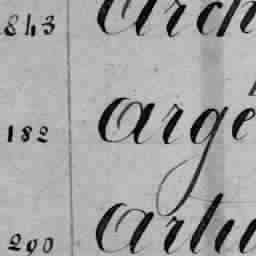 843 Arch
182 Arge
290 Artu